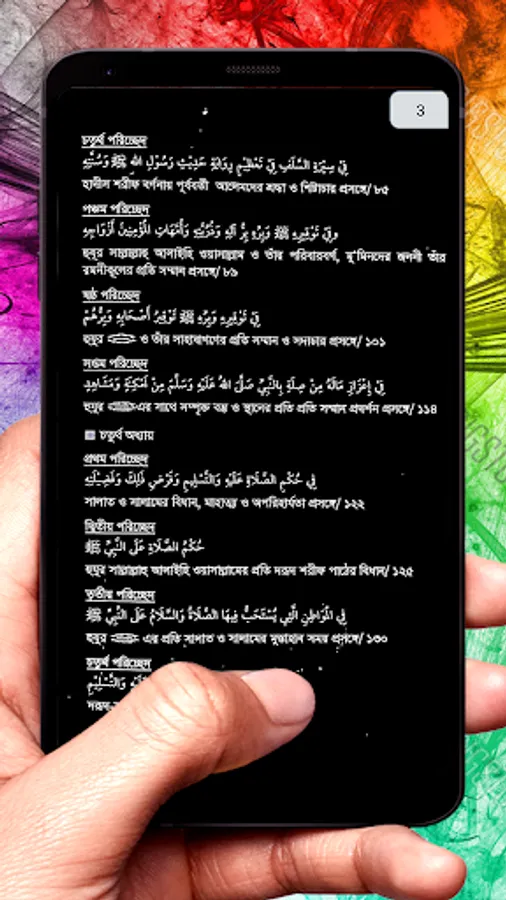 3
চতুর্থ পরিচ্ছেদ
فِي سِيْرَةِ السَّلَفِ فِي تَعْظِيْمِ رِوَايَةِ حَدِيْثِ رَسُوْلِ اللهِ ﷺ وَسُنَّتِهِ
হাদীস শরীফ বর্ণনায় পূর্ববর্তী আলেমদের শ্রদ্ধা ও শিষ্টাচার প্রসঙ্গে/ ৮৫
পঞ্চম পরিচ্ছেদ
وفِي تَوْقِيْرِهِ ﷺ وَبِرِّهِ بِرُّ آلِهِ وَذُرِّيَّتِهِ وَأُمَّهَاتِ الْمُؤْمِنِيْنَ أَزْوَاجِهِ
হুযুর সাল্লাল্লাহু আলাইহি ওয়াসাল্লাম ও তাঁর পরিবারবর্গ, মু'মিনদের জননী তাঁর
রমনীকূলের প্রতি সম্মান প্রসঙ্গে/ ৮৯
ষষ্ঠ পরিচ্ছেদ
فِي تَوْقِيْرِهِ وَبِرِّهِ ﷺ تَوْقِيْرُ أَصْحَابِهِ وَبِرُّهُمْ
হুযুর ও তাঁর সাহাবাগণের প্রতি সম্মান ও সদাচার প্রসঙ্গে/ ১০১
সপ্তম পরিচ্ছেদ
فِي إِعْزَازِ مَالَهُ مِنْ صِلَةٍ بِالنَّبِيِّ صَلَّى اللهُ عَلَيْهِ وَسَلَّمَ مِنْ أَمْكِنَةٍ وَمَشَاهِدٍ
হুযুর এর সাথে সম্পৃক্ত বস্তু ও স্থানের প্রতি প্রতি সম্মান প্রদর্শন প্রসঙ্গে/ ১১৪
চতুর্থ অধ্যায়
প্রথম পরিচ্ছেদ
فِي حُكْمِ الصَّلَاةِ عَلَيْهِ وَالتَّسْلِيْمِ وَفَرْضِ ذَلِكَ وَفَضِيْلَتِهِ
সালাত ও সালামের বিধান, মাহাত্ম্য ও অপরিহার্যতা প্রসঙ্গে/ ১২২
দ্বিতীয় পরিচ্ছেদ
حُكْمُ الصَّلَاةِ عَلَى النَّبِيِّ ﷺ
হুযুর সাল্লাল্লাহু আলাইহি ওয়াসাল্লামের প্রতি দরূদ শরীফ পাঠের বিধান/ ১২৫
তৃতীয় পরিচ্ছেদ
فِي الْمَوَاطِنِ الَّتِي يُسْتَحَبُّ فِيهَا الصَّلَاةُ وَالسَّلَامُ عَلَى النَّبِيِّ ﷺ
হুযুর এর প্রতি সালাত ও সালামের মুস্তাহাব সময় প্রসঙ্গে/ ১৩০
চতুর্থ পরিচ্ছেদ
وَالتَّسْلِيْمِ